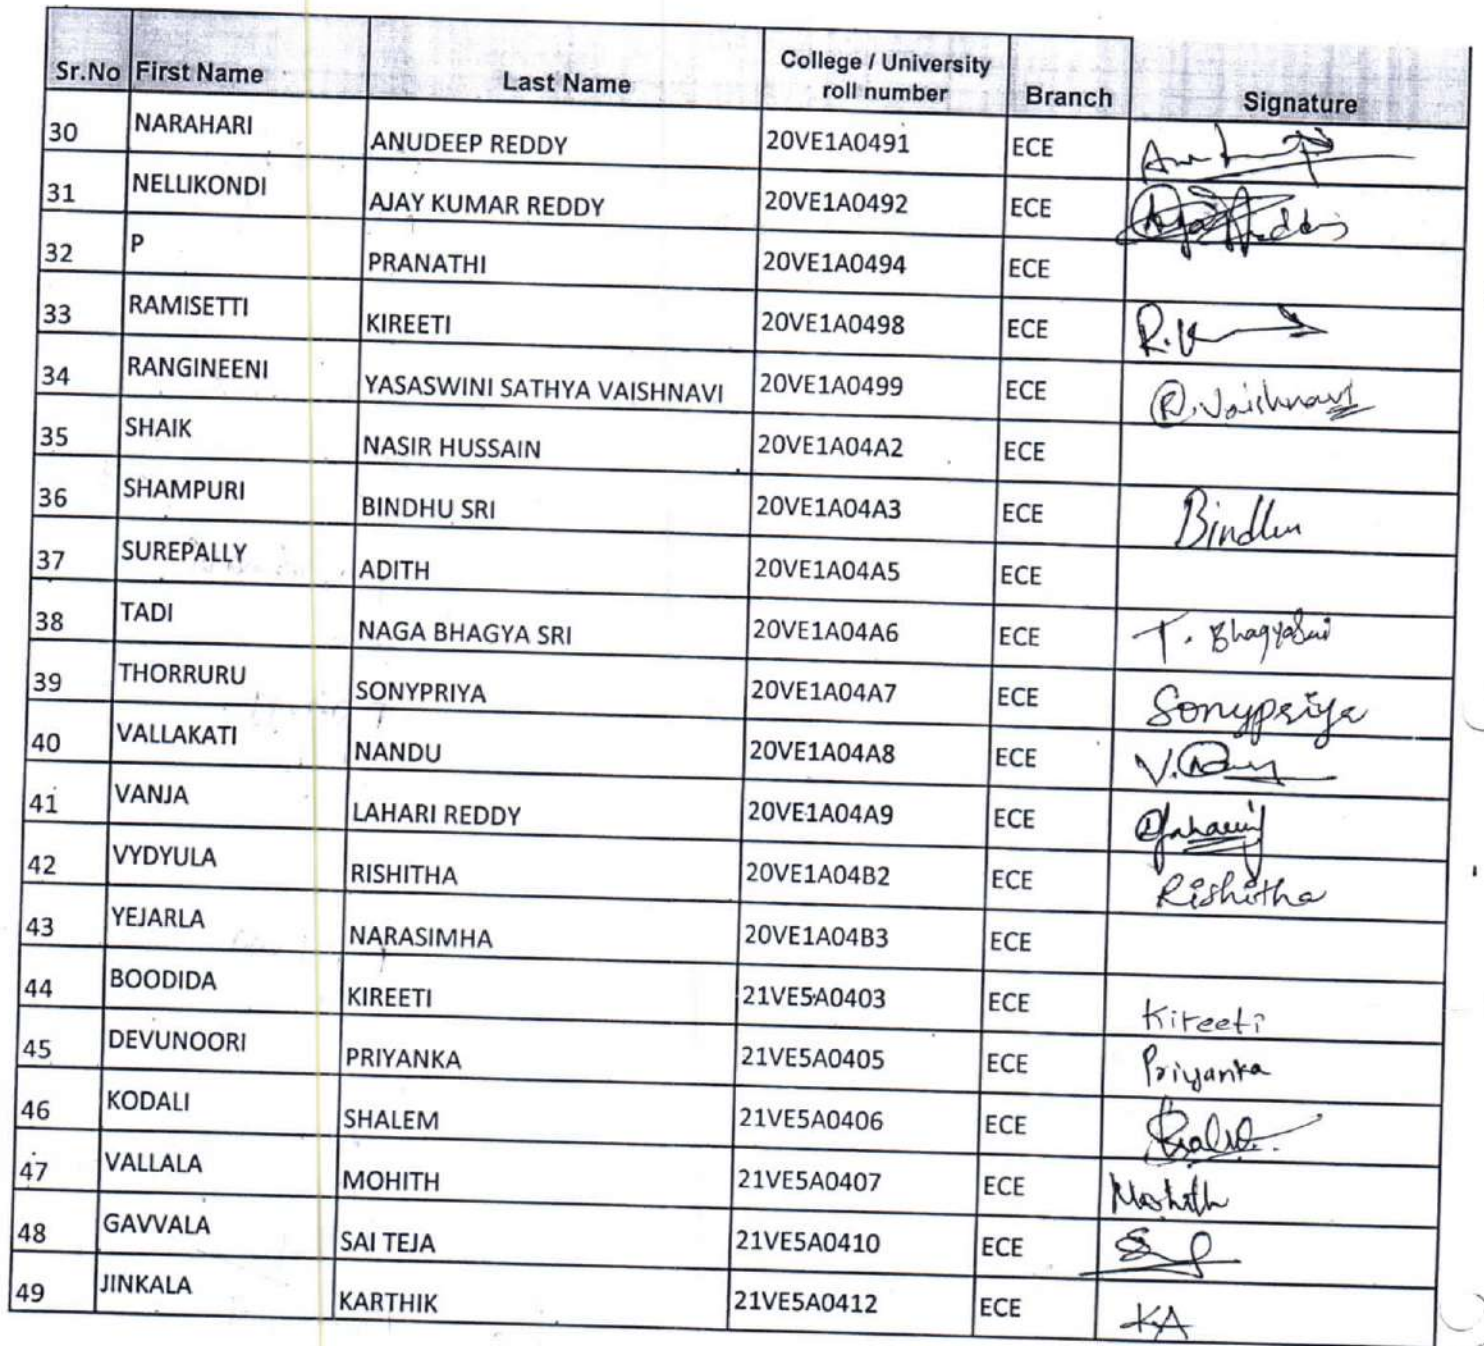 Sr.No First Name Last Name College / University roll number Branch Signature
30 NARAHARI ANUDEEP REDDY 20VE1A0491 ECE
31 NELLIKONDI AJAY KUMAR REDDY 20VE1A0492 ECE
32 P PRANATHI 20VE1A0494 ECE
33 RAMISETTI KIREETI 20VE1A0498 ECE
34 RANGINEENI YASASWINI SATHYA VAISHNAVI 20VE1A0499 ECE R. Vaishnavi
35 SHAIK NASIR HUSSAIN 20VE1A04A2 ECE
36 SHAMPURI BINDHU SRI 20VE1A04A3 ECE Bindhu
37 SUREPALLY ADITH 20VE1A04A5 ECE
38 TADI NAGA BHAGYA SRI 20VE1A04A6 ECE T. BhagyaSri
39 THORRURU SONYPRIYA 20VE1A04A7 ECE Sonypriya
40 VALLAKATI NANDU 20VE1A04A8 ECE
41 VANJA LAHARI REDDY 20VE1A04A9 ECE
42 VYDYULA RISHITHA 20VE1A04B2 ECE Rishitha
43 YEJARLA NARASIMHA 20VE1A04B3 ECE
44 BOODIDA KIREETI 21VE5A0403 ECE Kireeti
45 DEVUNOORI PRIYANKA 21VE5A0405 ECE Priyanka
46 KODALI SHALEM 21VE5A0406 ECE
47 VALLALA MOHITH 21VE5A0407 ECE Mohith
48 GAVVALA SAI TEJA 21VE5A0410 ECE
49 JINKALA KARTHIK 21VE5A0412 ECE KA